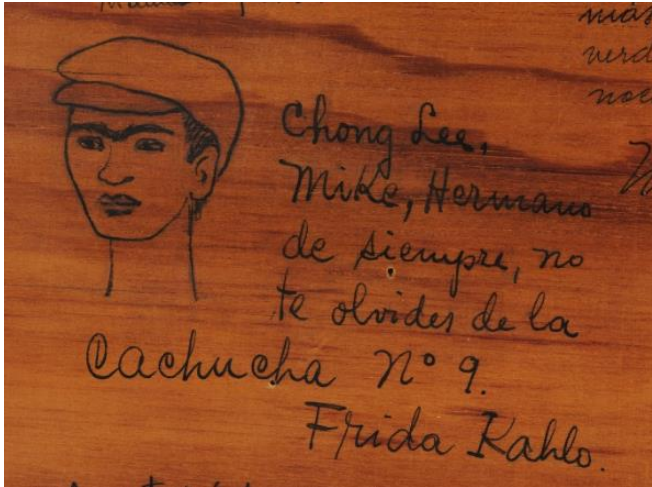 más
verd
noc
Chong Lee,
Mike, Hermano
de siempre, no
te olvides de la
Cachucha Nº 9.
Frida Kahlo.